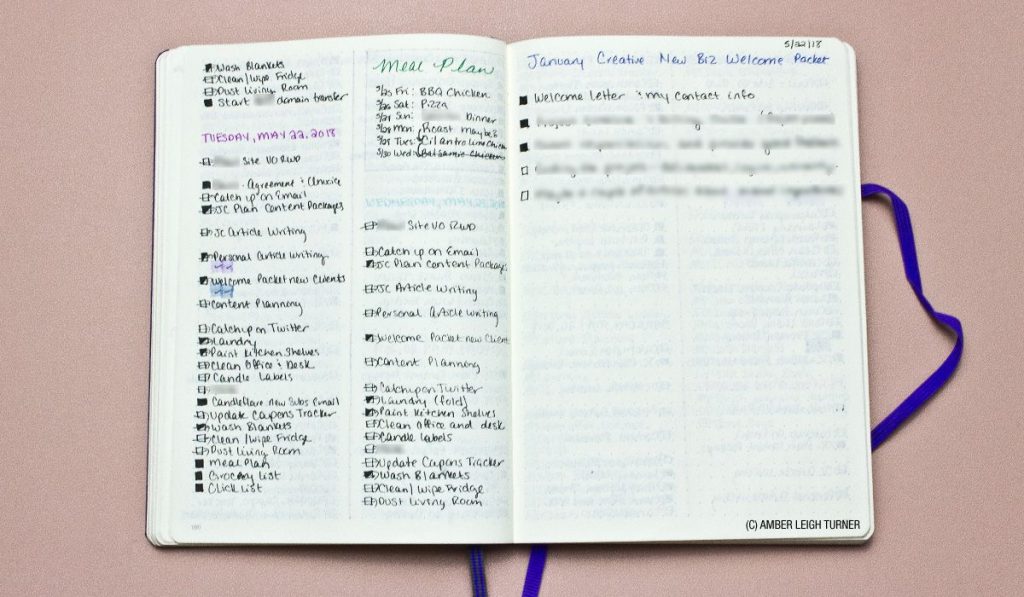 Wash Blankets
Clean/Wipe Fridge
Dust Living Room
Start domain transfer
TUESDAY, MAY 22, 2018
Site VO RWD
Agreement & Invoice
Catch up on Email
JC Plan Content Packages
JC Article Writing
Personal Article Writing
Welcome Packet new Clients
Content Planning
Catchup on Twitter
Laundry
Paint Kitchen Shelves
Clean Office & Desk
Candle Labels
Candleflare new Subs Email
Update Capons Tracker
Wash Blankets
Clean/Wipe Fridge
Dust Living Room
Meal Plan
Grocery List
Click List
160
Meal Plan
5/25 Fri: BBQ Chicken
5/26 Sat: Pizza
5/27 Sun: Dinner
5/28 Mon: Roast maybe?
5/29 Tues: Cilantro Lime Chicken
5/30 Wed: Balsamic Chicken
WEDNESDAY, MAY 23, 2018
Site VO RWD
Catch up on Email
JC Plan Content Packages
JC Article Writing
Personal Article Writing
Welcome Packet new Client
Content Planning
Catchup on Twitter
Laundry (fold)
Paint Kitchen Shelves
Clean Office and desk
Candle labels
Update Capons Tracker
Wash Blankets
Clean/Wipe Fridge
Dust Living Room
5/22/18
January Creative New Biz Welcome Packet
Welcome letter & my contact info
(C) AMBER LEIGH TURNER